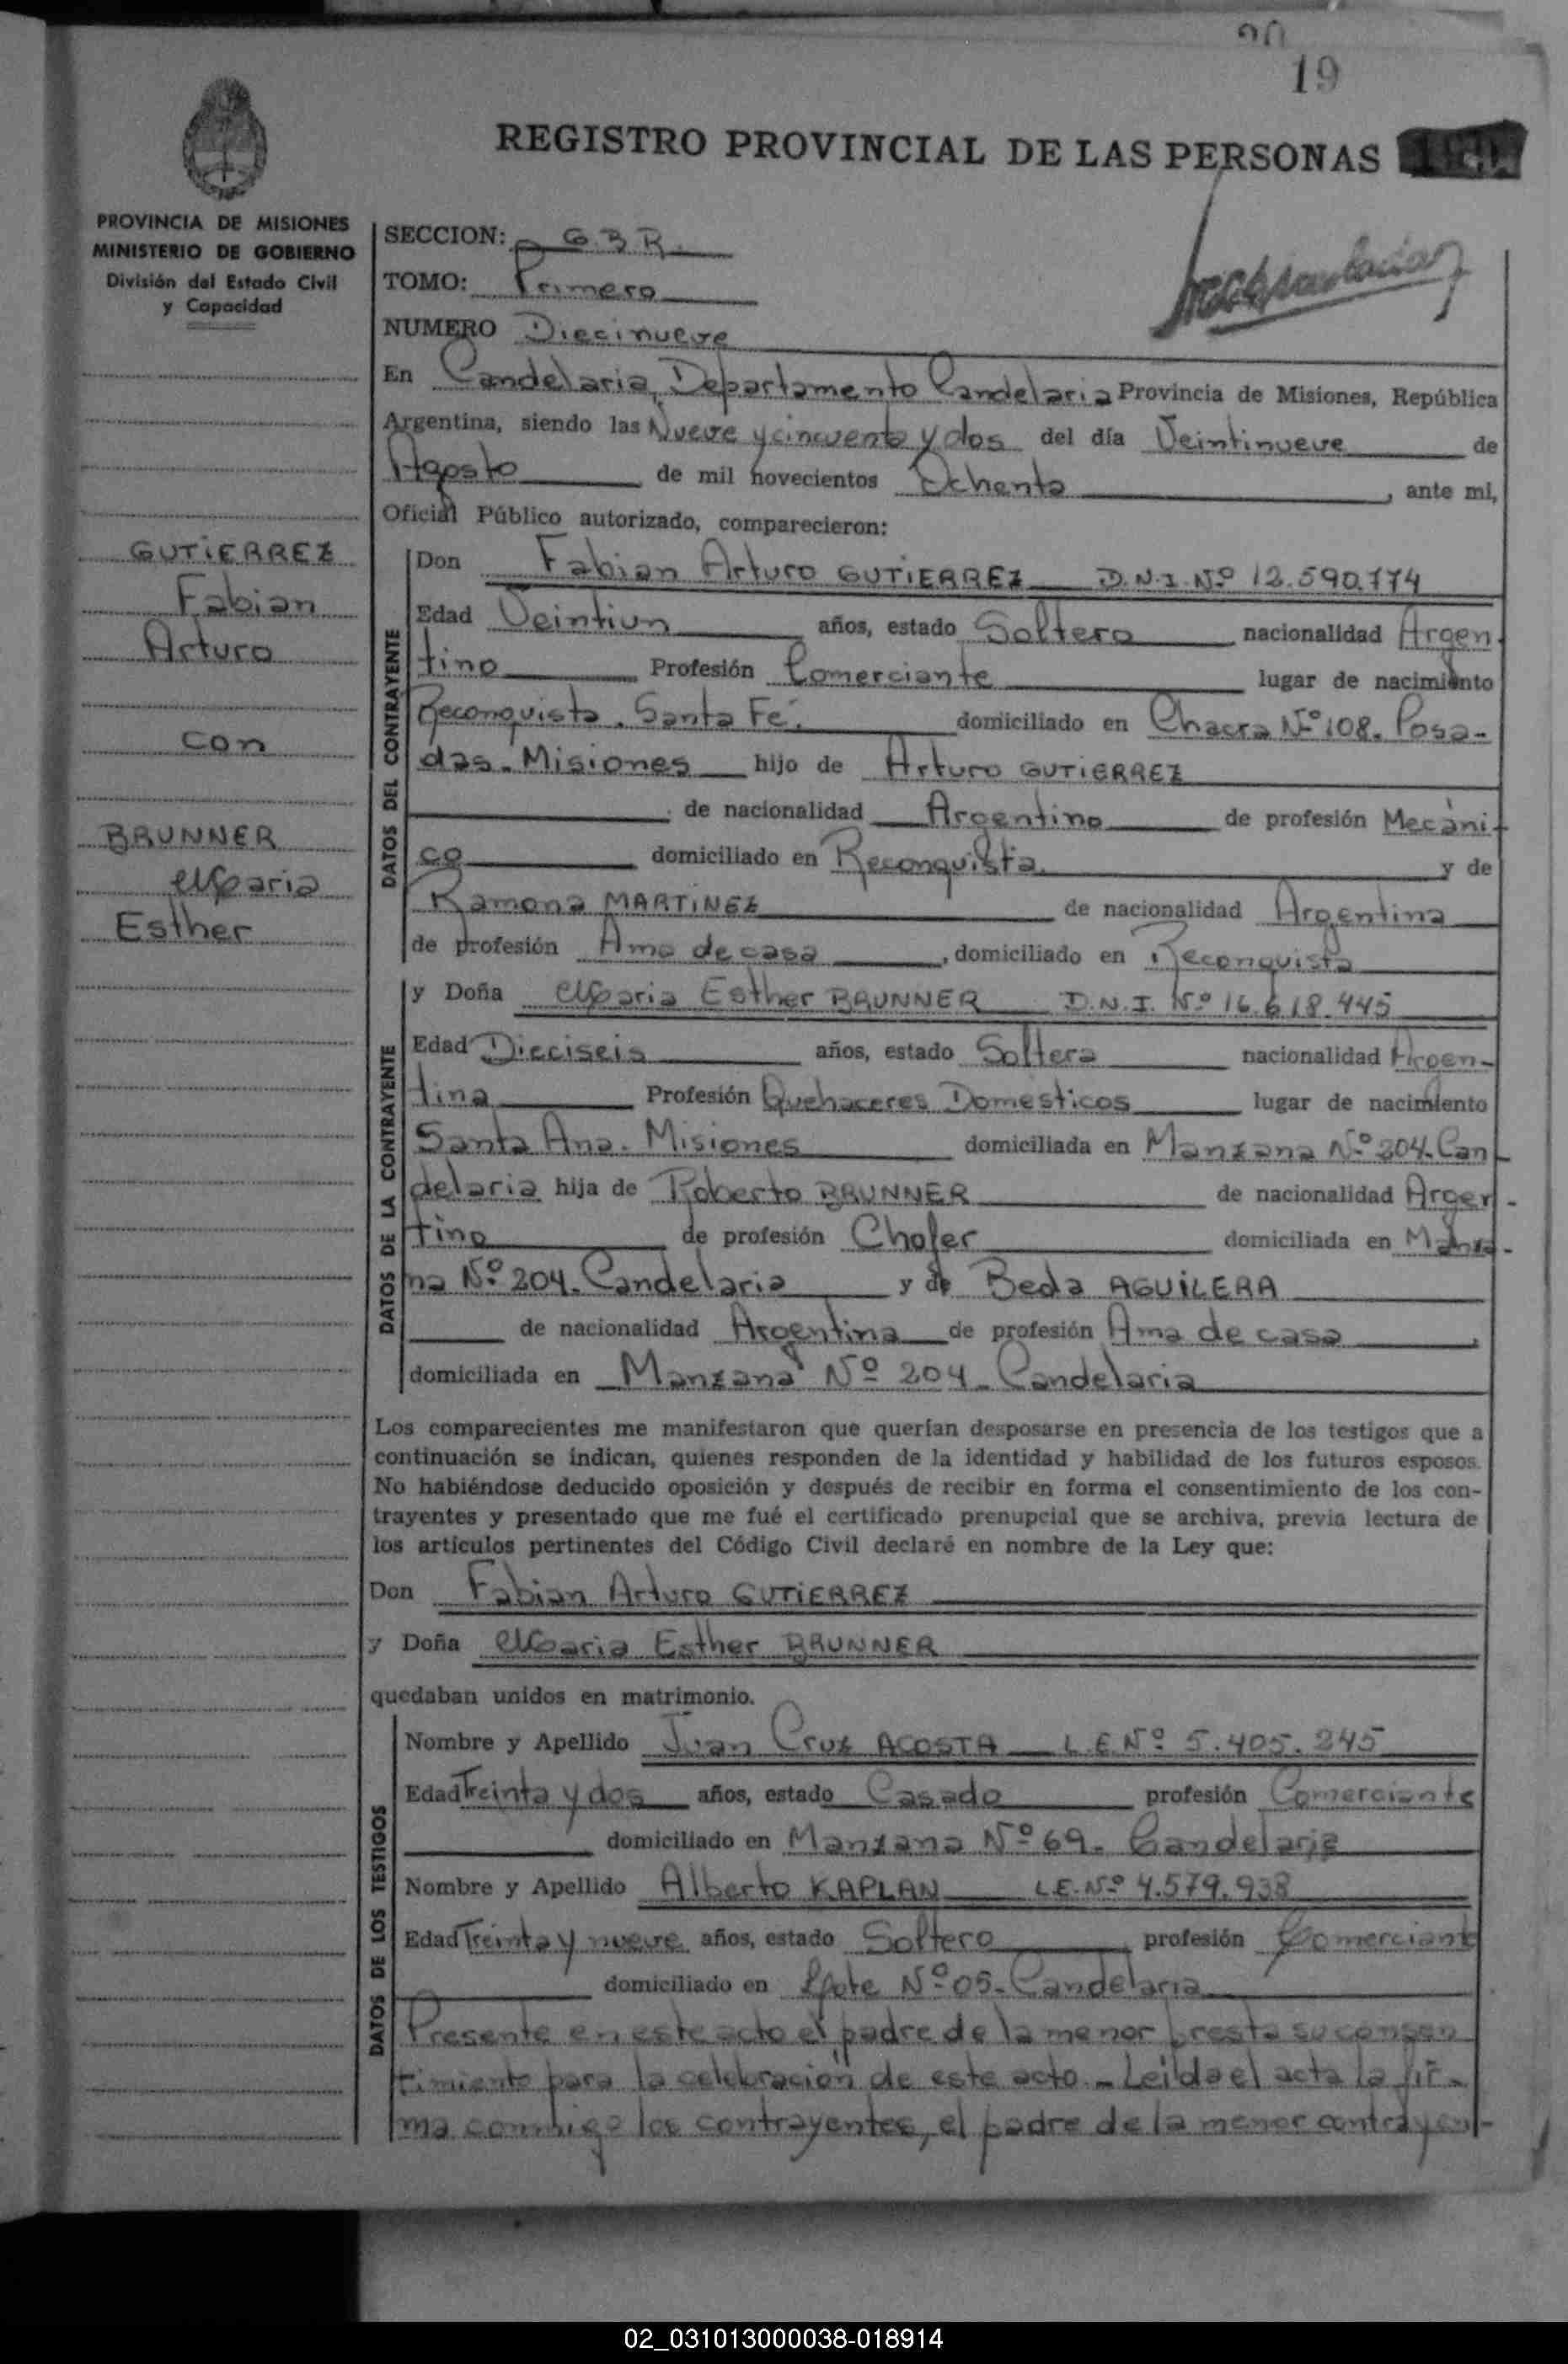 19
REGISTRO PROVINCIAL DE LAS PERSONAS
PROVINCIA DE MISIONES
MINISTERIO DE GOBIERNO
División del Estado Civil
y Capacidad
GUTIERREZ
Fabian
Arturo
con
BRUNNER
Maria
Esther
SECCION: G.B.R.
TOMO: Primero
NUMERO Diecinueve
En Candelaria, Departamento Candelaria Provincia de Misiones, República
Argentina, siendo las Nueve y cincuenta y dos del día Veintinueve de
Agosto de mil novecientos Ochenta, ante mi,
Oficial Público autorizado, comparecieron:
DATOS DEL CONTRAYENTE
Don Fabian Arturo GUTIERREZ D.N.I. Nº 12.590.774
Edad Veintiun años, estado Soltero nacionalidad Argen-
tino Profesión Comerciante lugar de nacimiento
Reconquista. Santa Fé. domiciliado en Chacra Nº 108. Posa-
das. Misiones hijo de Arturo GUTIERREZ
de nacionalidad Argentino de profesión Mecáni-
co domiciliado en Reconquista y de
Ramona MARTINEZ de nacionalidad Argentina
de profesión Ama de casa, domiciliado en Reconquista
DATOS DE LA CONTRAYENTE
y Doña Maria Esther BRUNNER D.N.I. Nº 16.618.445
Edad Dieciseis años, estado Soltera nacionalidad Argen-
tina Profesión Quehaceres Domesticos lugar de nacimiento
Santa Ana. Misiones domiciliada en Manzana Nº 204. Can-
delaria hija de Roberto BRUNNER de nacionalidad Argen-
tino de profesión Chofer domiciliada en Manza-
na Nº 204. Candelaria y de Beda AGUILERA
de nacionalidad Argentina de profesión Ama de casa,
domiciliada en Manzana Nº 204. Candelaria
Los comparecientes me manifestaron que querían desposarse en presencia de los testigos que a
continuación se indican, quienes responden de la identidad y habilidad de los futuros esposos.
No habiéndose deducido oposición y después de recibir en forma el consentimiento de los con-
trayentes y presentado que me fué el certificado prenupcial que se archiva, previa lectura de
los artículos pertinentes del Código Civil declaré en nombre de la Ley que:
Don Fabian Arturo GUTIERREZ
y Doña Maria Esther BRUNNER
quedaban unidos en matrimonio.
DATOS DE LOS TESTIGOS
Nombre y Apellido Juan Cruz ACOSTA L.E. Nº 5.405.245
Edad Treinta y dos años, estado Casado profesión Comerciante
domiciliado en Manzana Nº 69. Candelaria
Nombre y Apellido Alberto KAPLAN L.E. Nº 4.579.938
Edad Treinta y nueve años, estado Soltero profesión Comerciante
domiciliado en Lote Nº 05. Candelaria
Presente en este acto el padre de la menor presta su consen
timiento para la celebración de este acto. - Leída el acta la fir-
ma conmigo los contrayentes, el padre de la menor contrayen-
02_031013000038-018914